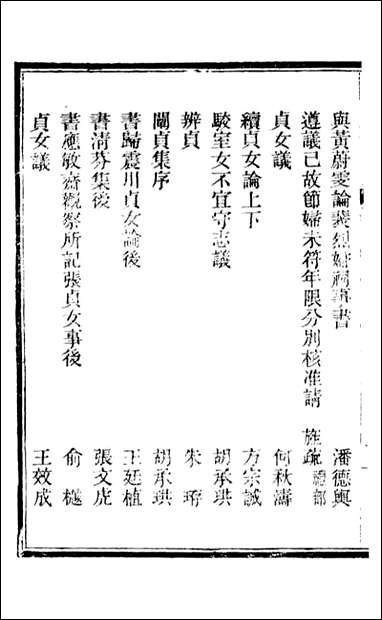 與黃蔚雯論裴烈婦祠事書 潘德輿
遵議已故節婦未符年限分別核准請 旌疏 禮部
貞女議 何秋濤
續貞女論上下 方宗誠
駮室女不宜守志議 胡承珙
辨貞 朱珔
闡貞集序 胡承珙
書歸震川貞女論後 王廷植
書清芬集後 張文虎
書應敏齋觀察所記張貞女事後 俞樾
貞女議 王效成